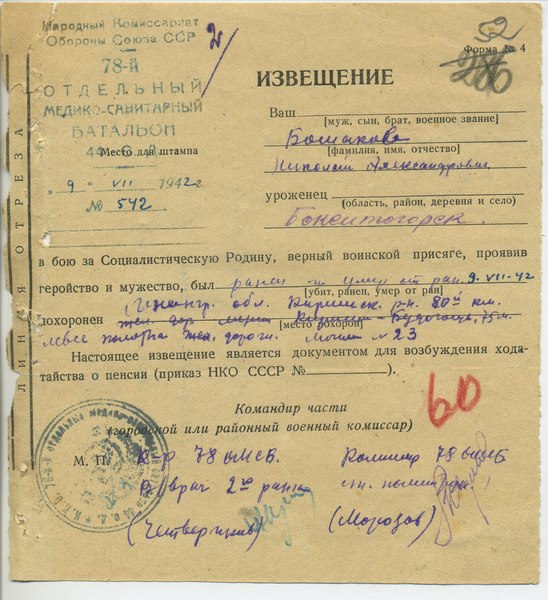 Народный Комиссариат
Обороны Союза ССР
78-й
ОТДЕЛЬНЫЙ
МЕДИКО-САНИТАРНЫЙ
БАТАЛЬОН
44
Место для штампа
9 VII 1942 г.
№ 542
52
Форма № 4
ИЗВЕЩЕНИЕ
Ваш
[муж, сын, брат, военное звание]
[фамилия, имя, отчество]
Николай Александрович
уроженец
(область, район, деревня и село)
Бокситогорск.
в бою за Социалистическую Родину, верный воинской присяге, проявив
геройство и мужество, был ранен и умер от ран. 9-VII-42
[убит, ранен, умер от ран]
Ленингр. обл. Киришск. р-н. 80й км.
похоронен
[место похорон]
левее полотна жел. дороги. Могила № 23
Настоящее извещение является документом для возбуждения хода-
тайства о пенсии (приказ НКО СССР № ).
60
Командир части
(городской или районный военный комиссар)
М. П.
К-р 78 ОМСБ.
Комиссар 78 ОМСБ
в/врач 2го ранга
ст. политрук
(Морозов)
ЛИНИЯ ОТРЕЗА